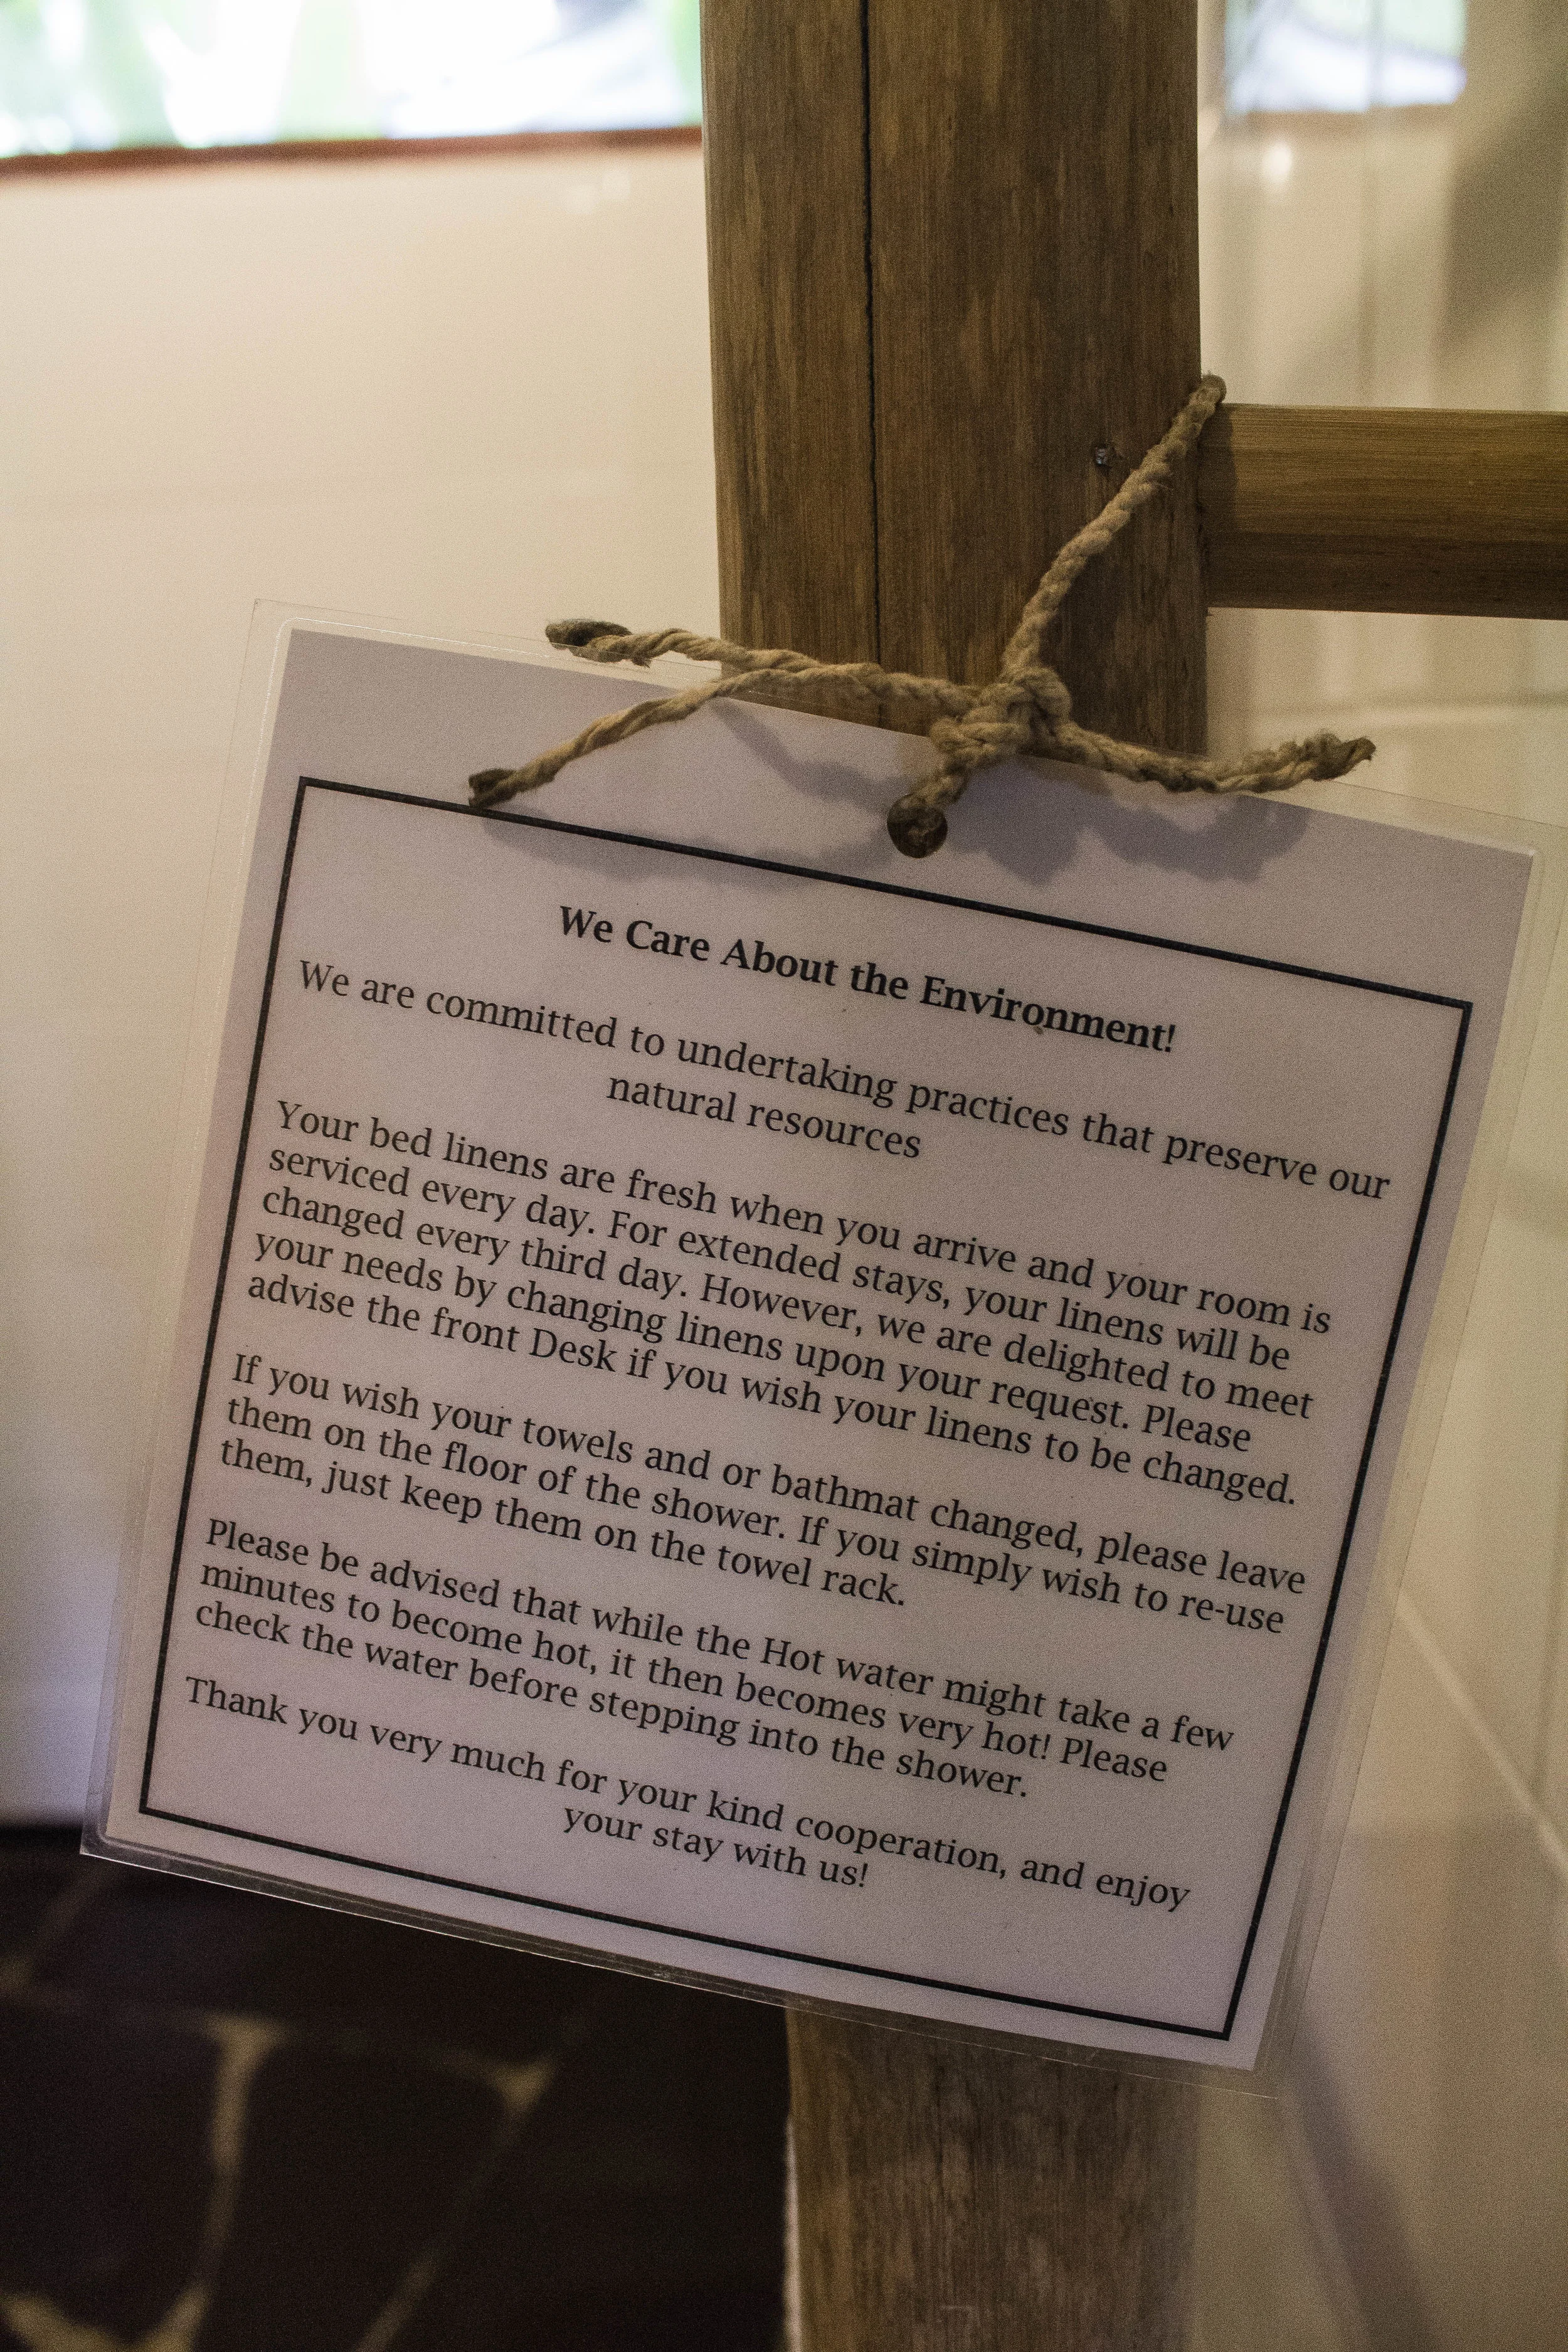 We Care About the Environment!
We are committed to undertaking practices that preserve our
natural resources
Your bed linens are fresh when you arrive and your room is
serviced every day. For extended stays, your linens will be
changed every third day. However, we are delighted to meet
your needs by changing linens upon your request. Please
advise the front Desk if you wish your linens to be changed.
If you wish your towels and or bathmat changed, please leave
them on the floor of the shower. If you simply wish to re-use
them, just keep them on the towel rack.
Please be advised that while the Hot water might take a few
minutes to become hot, it then becomes very hot! Please
check the water before stepping into the shower.
Thank you very much for your kind cooperation, and enjoy
your stay with us!